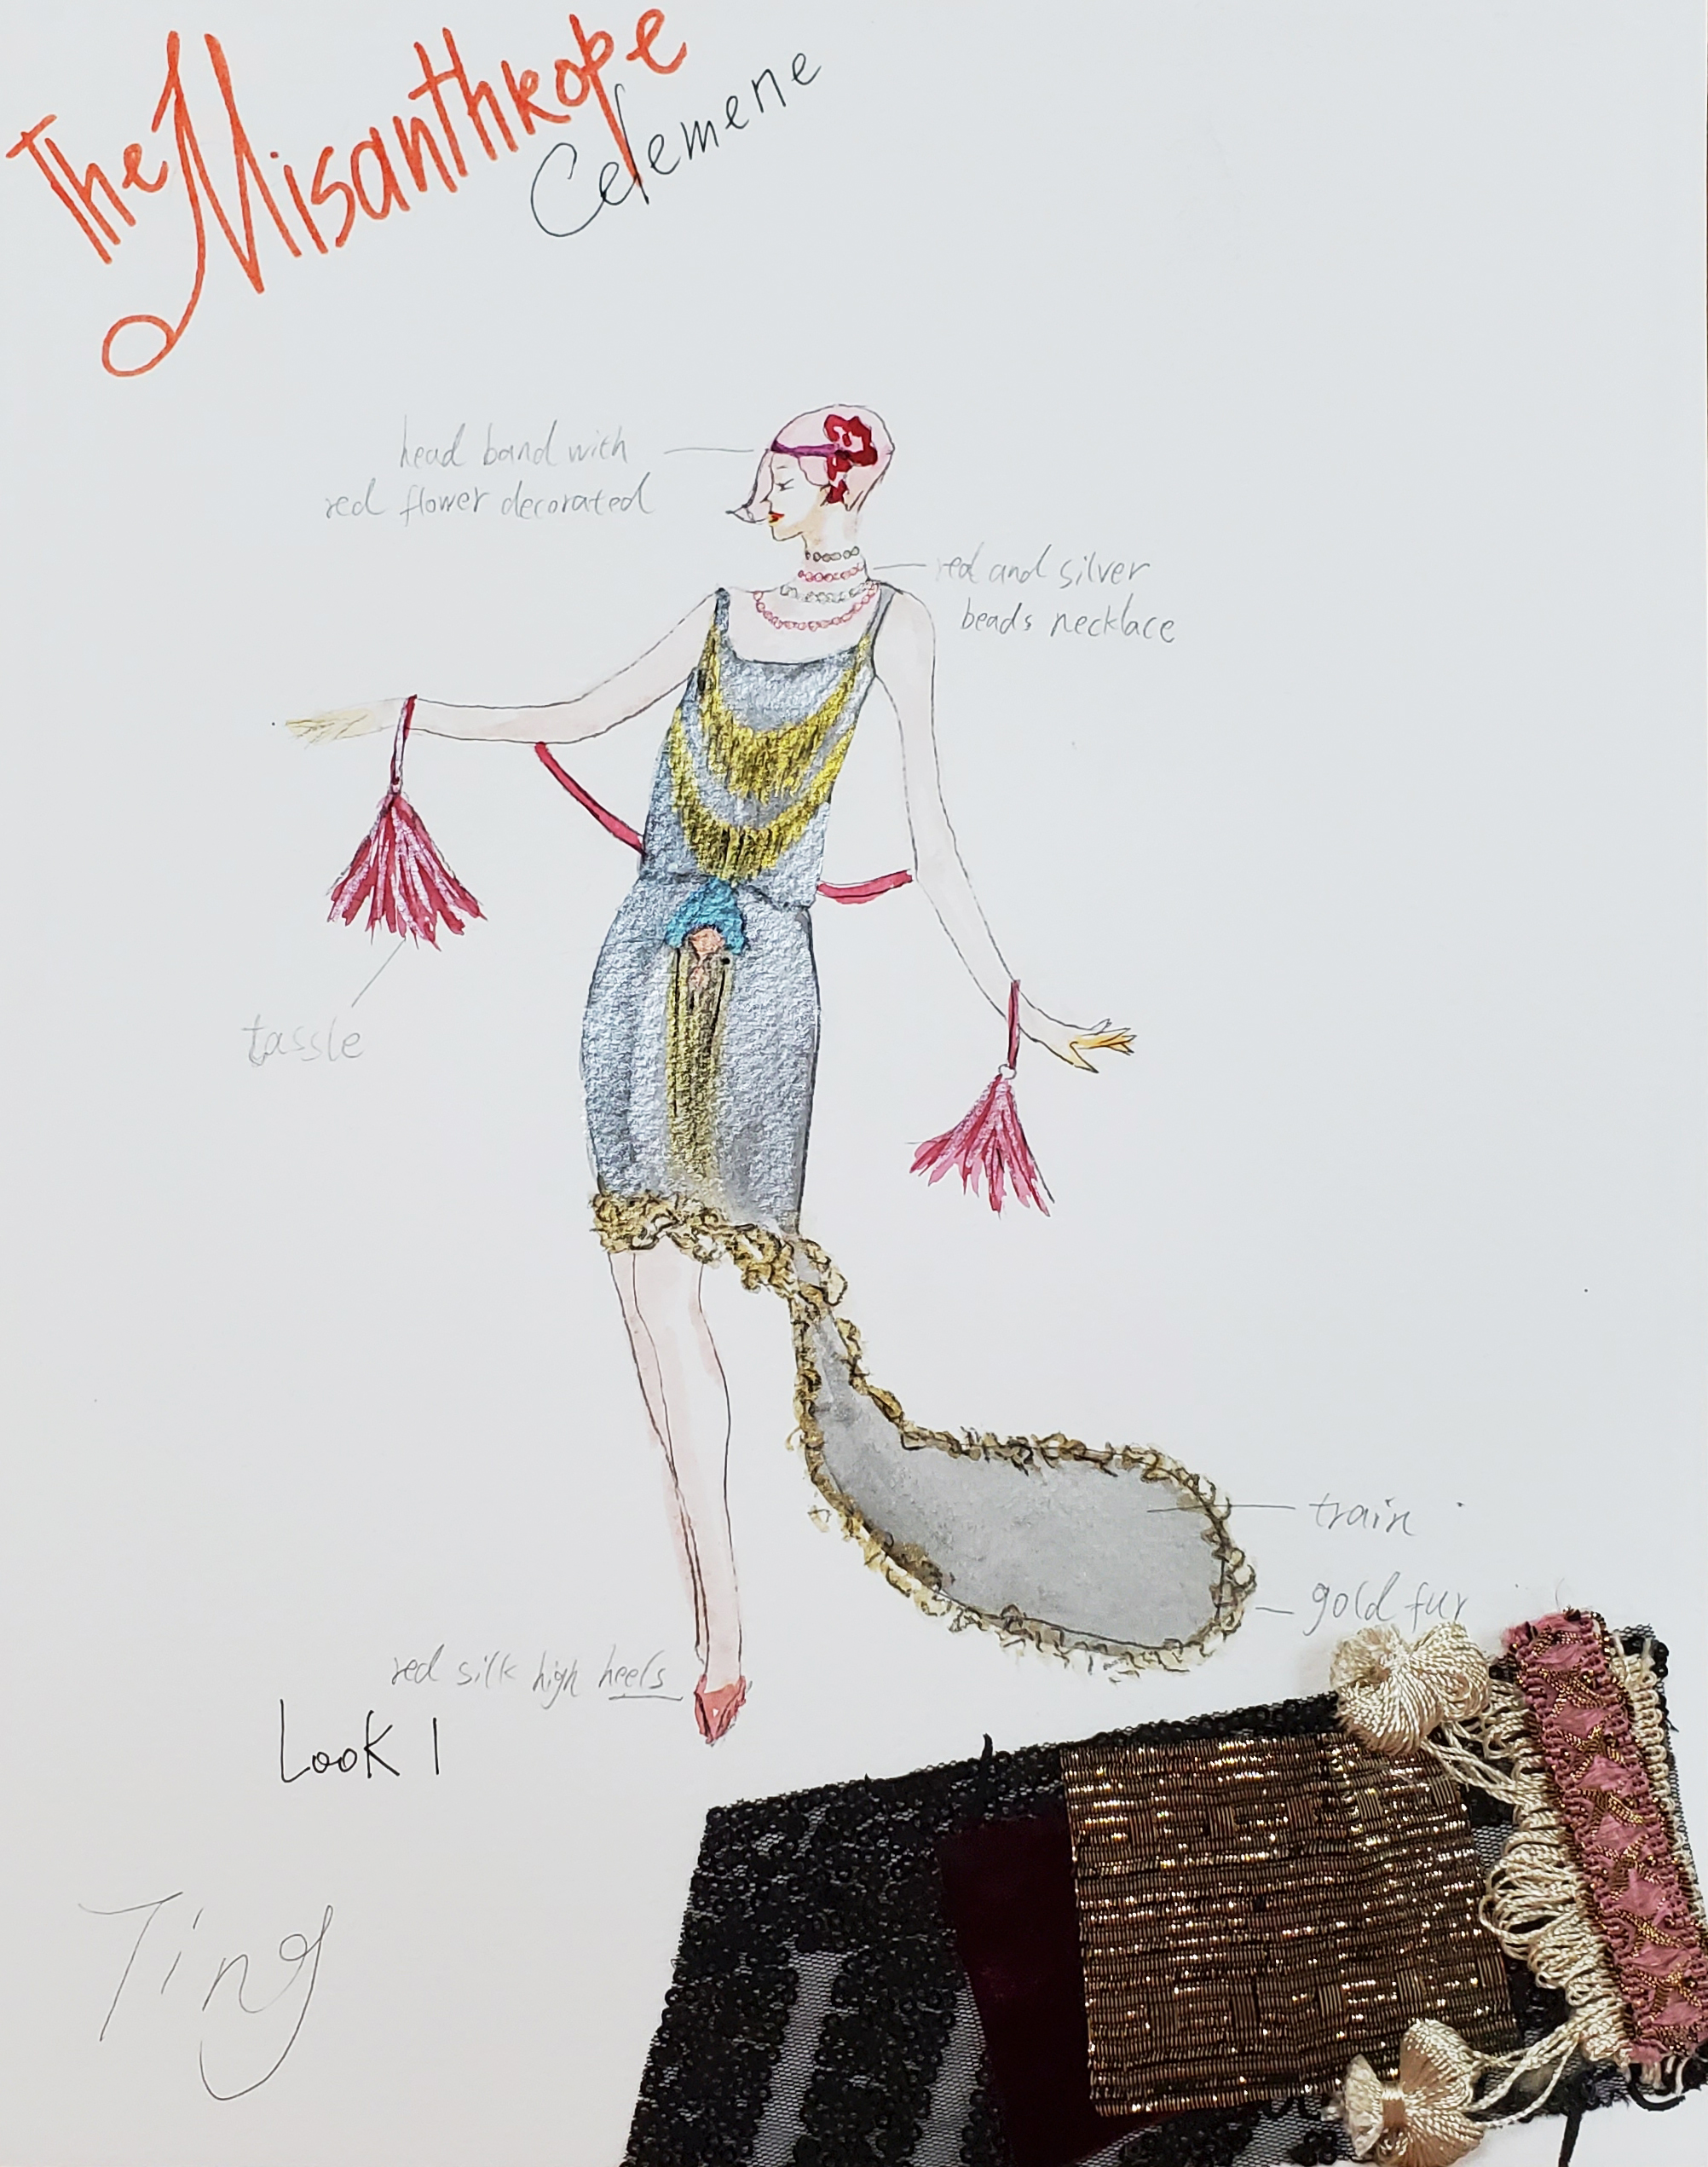 The Misanthrope
Celemene
head band with
red flower decorated
red and silver
beads necklace
tassle
train
gold fur
red silk high heels
Look 1
Ting